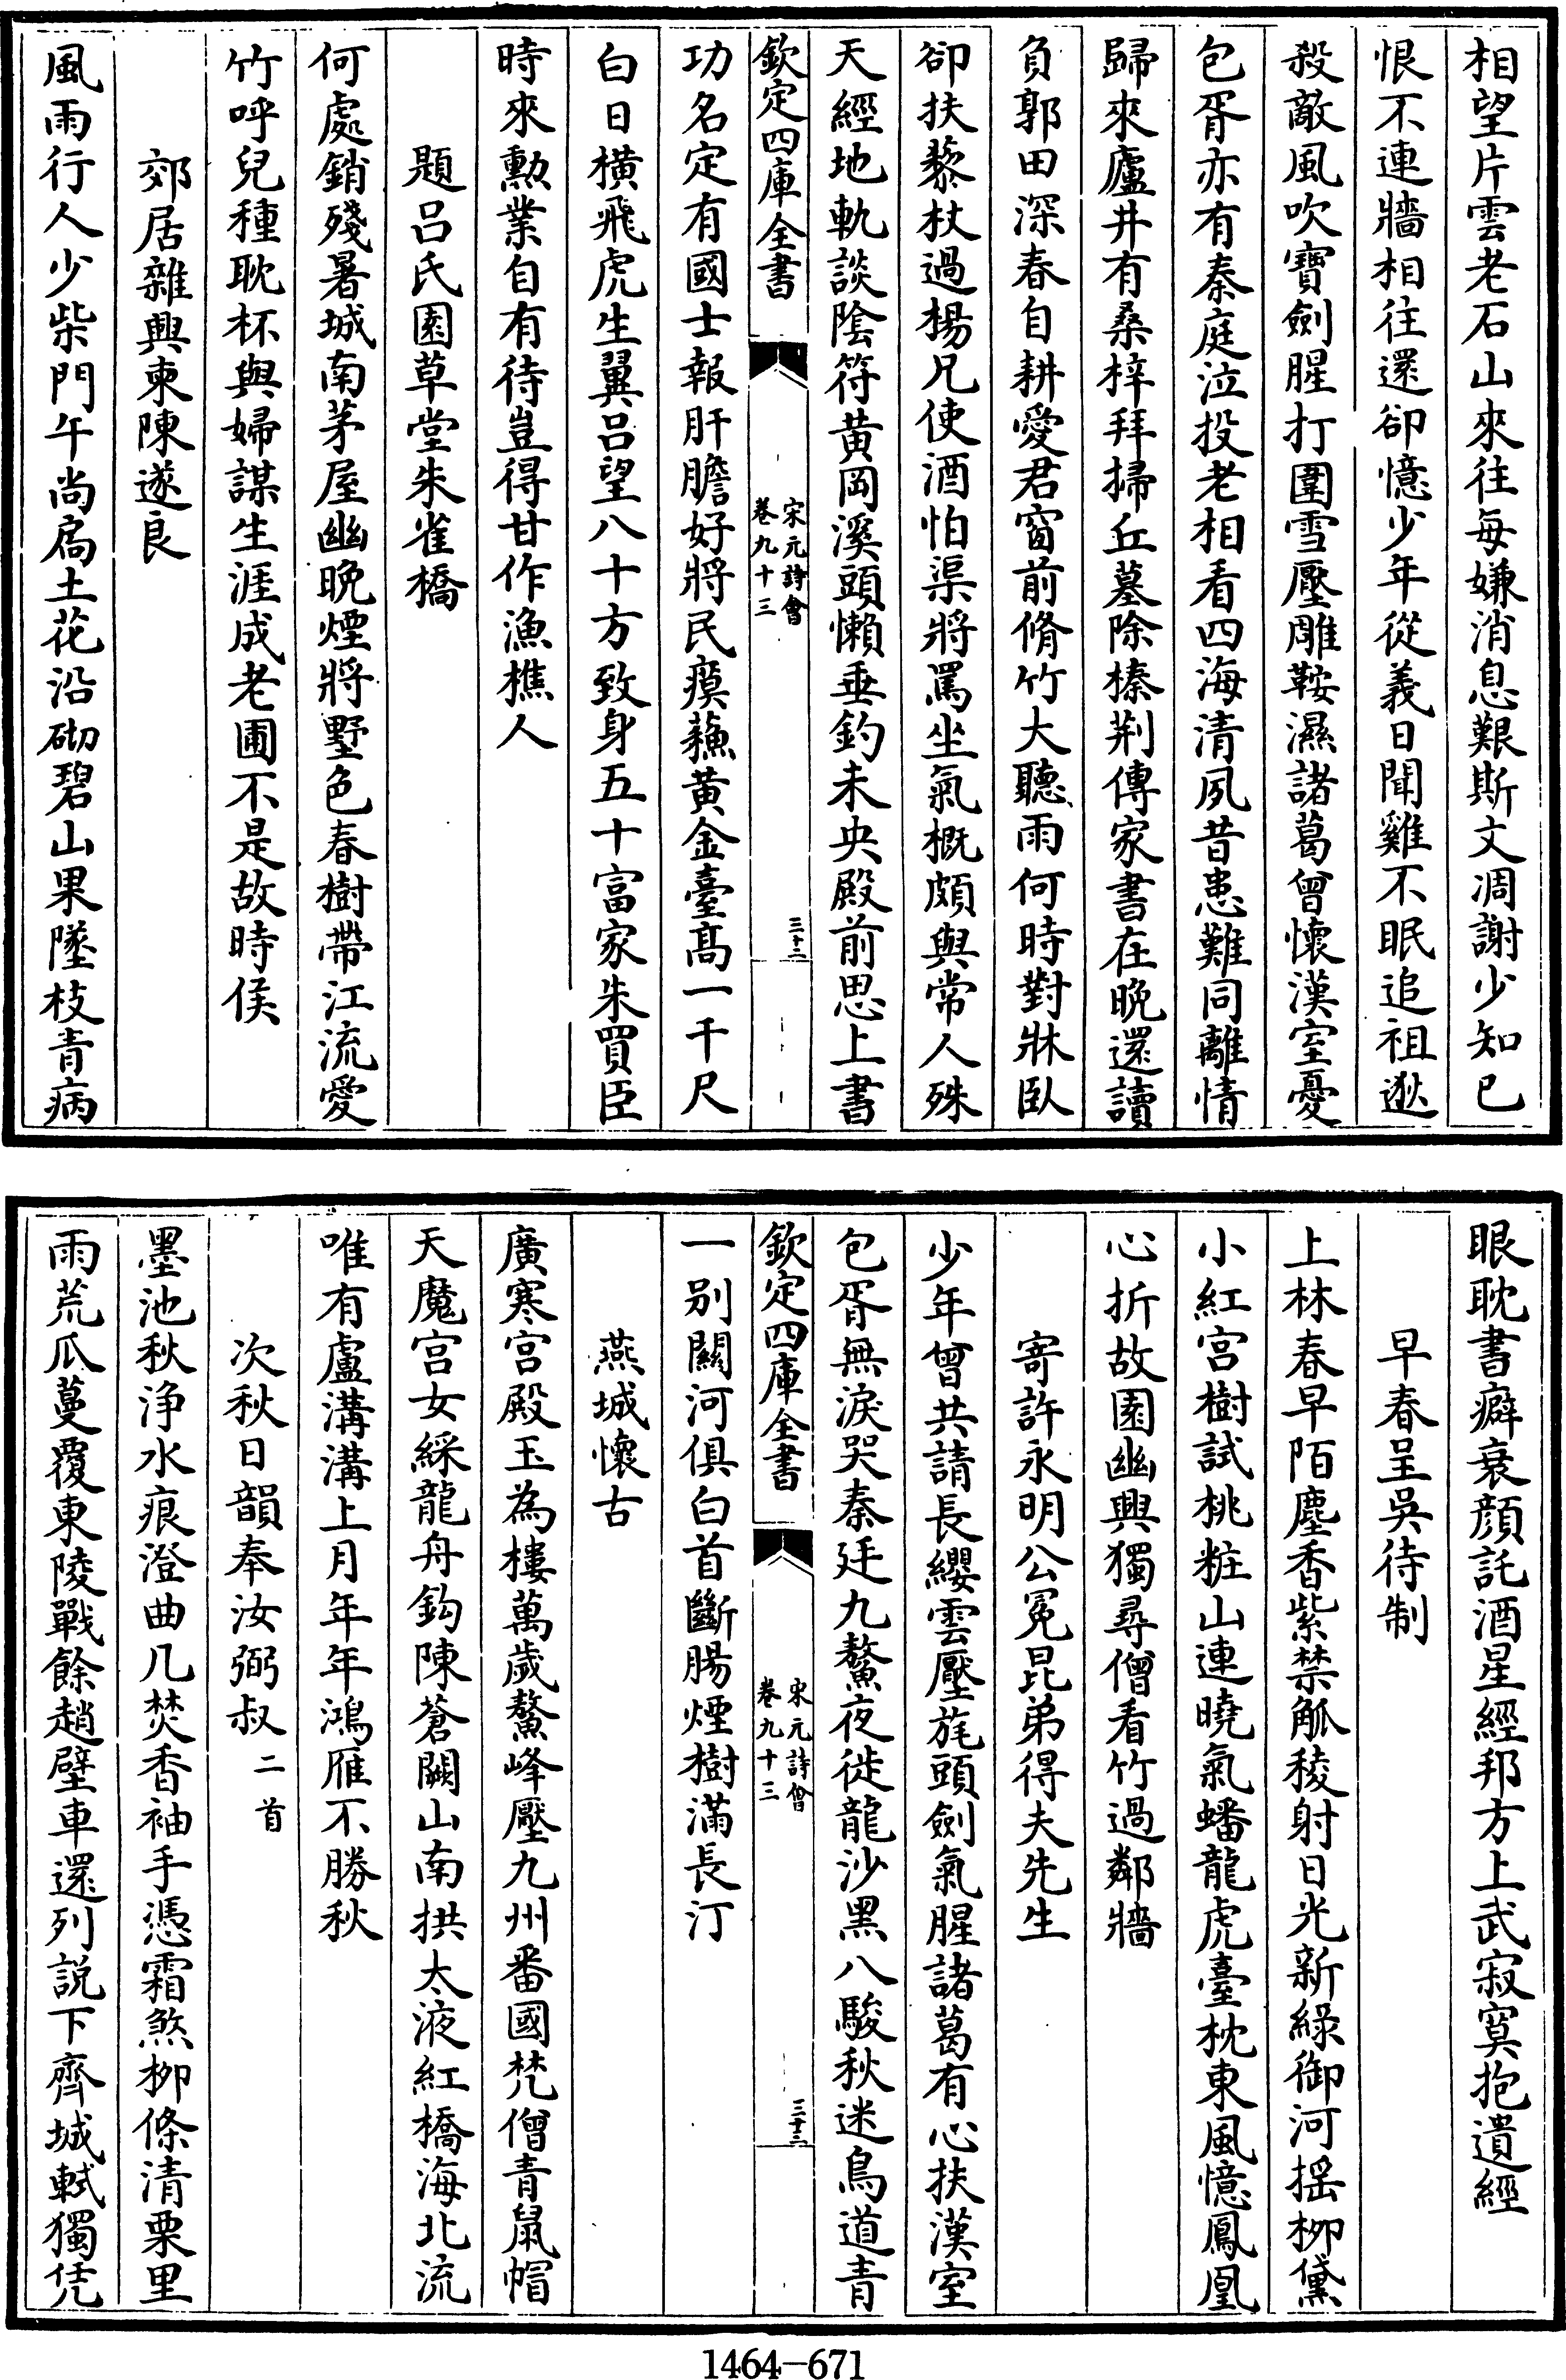 相望片雲老石山來往每嫌消息艱斯文凋謝少知已
恨不連牆相往還卻憶少年從義日聞雞不眠追祖逖
殺敵風吹寶劍腥打圍雪壓雕鞍濕諸葛曾懷漢室憂
包胥亦有秦庭泣投老相看四海清夙昔患難同離情
歸來廬井有桑梓拜掃丘墓除榛荆傳家書在晩還讀
負郭田深春自耕愛君窗前脩竹大聽雨何時對牀臥
卻扶藜杖過楊兄使酒怕渠將罵坐氣概頗與常人殊
天經地軌談陰符黄岡溪頭懶垂釣未央殿前思上書
欽定四庫全書
宋元詩會
卷九十三
三十二
功名定有國士報肝膽好將民瘼蘓黄金臺髙一千尺
白日橫飛虎生翼吕望八十方致身五十富家朱買臣
時來勲業自有待豈得甘作漁樵人
題吕氏園草堂朱雀橋
何處銷殘暑城南茅屋幽晩煙將墅色春樹帶江流愛
竹呼兒種耽杯與婦謀生涯成老圃不是故時侯
郊居雜興柬陳遂良
風雨行人少柴門午尚扄土花沿砌碧山果墜枝青病
眼耽書癖衰顔託酒星經邦方上武寂寞抱遺經
早春呈吳待制
上林春早陌塵香紫禁觚稜射日光新綠御河揺栁黛
小紅宫樹試桃粧山連曉氣蟠龍虎臺枕東風憶鳳凰
心折故園幽興獨尋僧看竹過鄰牆
寄許永明公冕昆弟得夫先生
少年曾共請長纓雲壓旄頭劍氣腥諸葛有心扶漢室
包胥無淚哭秦廷九鰲夜徙龍沙黑八駿秋迷鳥道青
欽定四庫全書
宋元詩會
卷九十三
三十三
一别關河俱白首斷腸煙樹滿長汀
燕城懷古
廣寒宫殿玉為樓萬歲鰲峰壓九州番國梵僧青鼠帽
天魔宫女綵龍舟鈎陳蒼闕山南拱太液紅橋海北流
唯有盧溝溝上月年年鴻雁不勝秋
次秋日韻奉汝弼叔二首
墨池秋淨水痕澄曲几焚香袖手憑霜煞栁條清栗里
雨荒瓜蔓覆東陵戰餘趙壁車還列説下齊城軾獨凭
1464-671